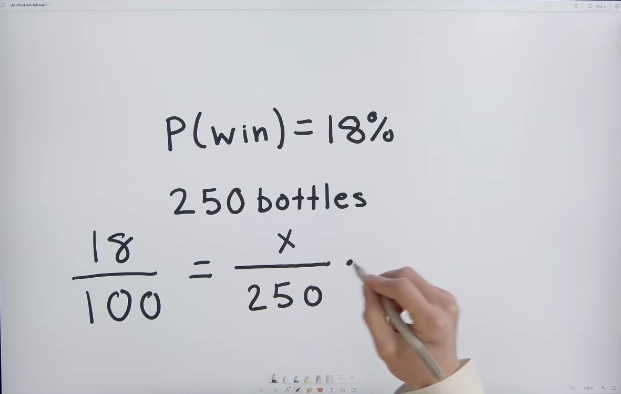 P(win) = 18%
250 bottles
18/100 = x/250 ·